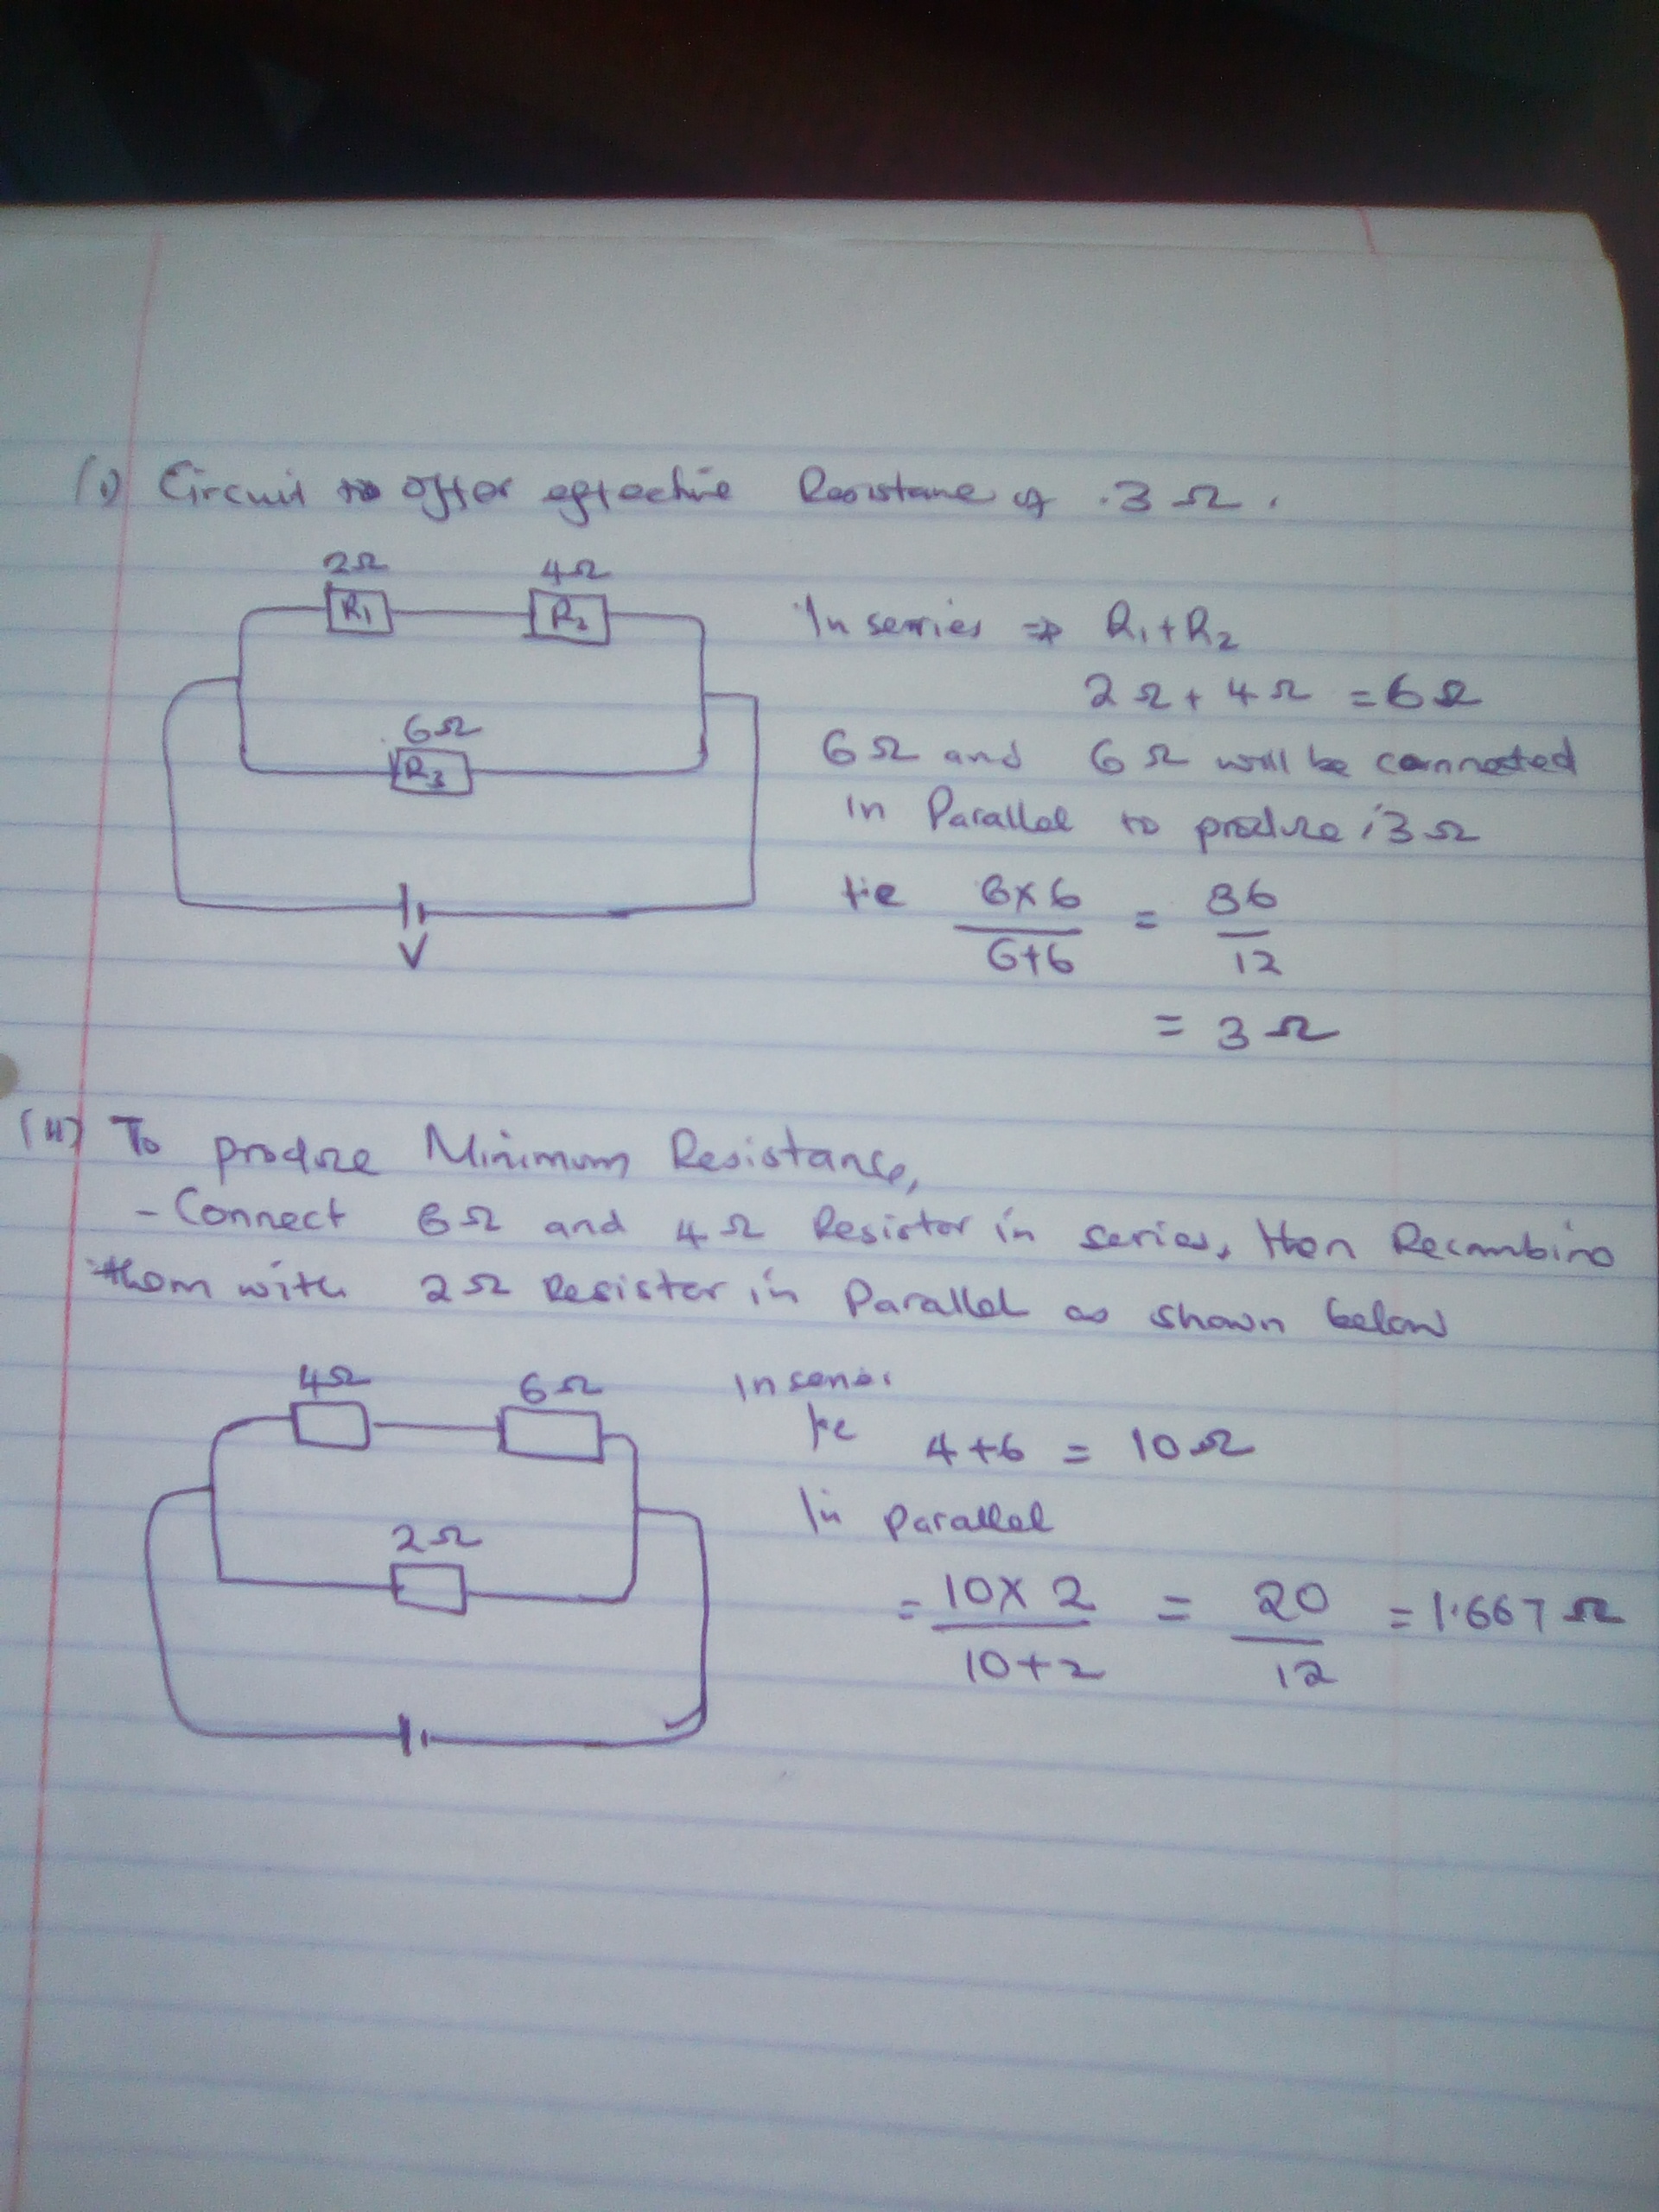 (i) Circuit to offer effective Resistance of 3 Ω.
2Ω 4Ω
R₁ R₂
In serries ⇒ R₁+R₂
2 Ω + 4 Ω = 6Ω
6Ω
R₃
6Ω and 6 Ω will be connected
in Parallel to produce 3 Ω
i.e 6×6 / 6+6 = 36 / 12
V
= 3 Ω
(ii) To produce Minimum Resistance,
- Connect 6Ω and 4Ω Resistor in series, then Recombine
them with 2Ω Resistor in Parallel as shown below
4Ω 6Ω
In series
i.e 4+6 = 10Ω
In parallel
2Ω
= 10×2 / 10+2 = 20 / 12 = 1.667 Ω